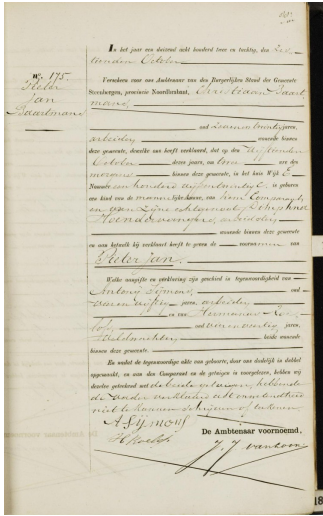 N°. 175.
Pieter
Jan
Baartmans
In het jaar een duizend acht honderd twee en tachtig, den
tienden October
Verscheen voor ons Ambtenaar van den Burgerlijken Stand der Gemeente
Steenbergen, provincie Noordbrabant, Christiaan Baart
mans,
oud zeven en twintig jaren,
arbeider wonende binnen
deze gemeente, dewelke ons heeft verklaard, dat op den
October dezes jaars, om twee ure des
morgens binnen deze gemeente, in het huis Wijk E
Nummer een honderd is geboren
een kind van de mannelijke kunne, van hem Comparant,
en van zijne echtgenoote
arbeidster
wonende binnen deze gemeente
en aan hetwelk hij verklaart heeft te geven de voornamen van
Pieter Jan.
Welke aangifte en verklaring zijn geschied in tegenwoordigheid van
Antony Sijmons oud
jaren, arbeider
en van Hermanus
oud jaren,
Veldwachter beide wonende
binnen deze gemeente.
En nadat de tegenwoordige akte van geboorte, door ons dadelijk in dubbel
opgemaakt, en aan den Comparant en de getuigen is voorgelezen, hebben wij
dezelve geteekend met de beide getuigen, hebbende
de vader verklaard uit onkunde
niet te kunnen schrijven of teekenen.
A Sijmons
De Ambtenaar voornoemd,
18